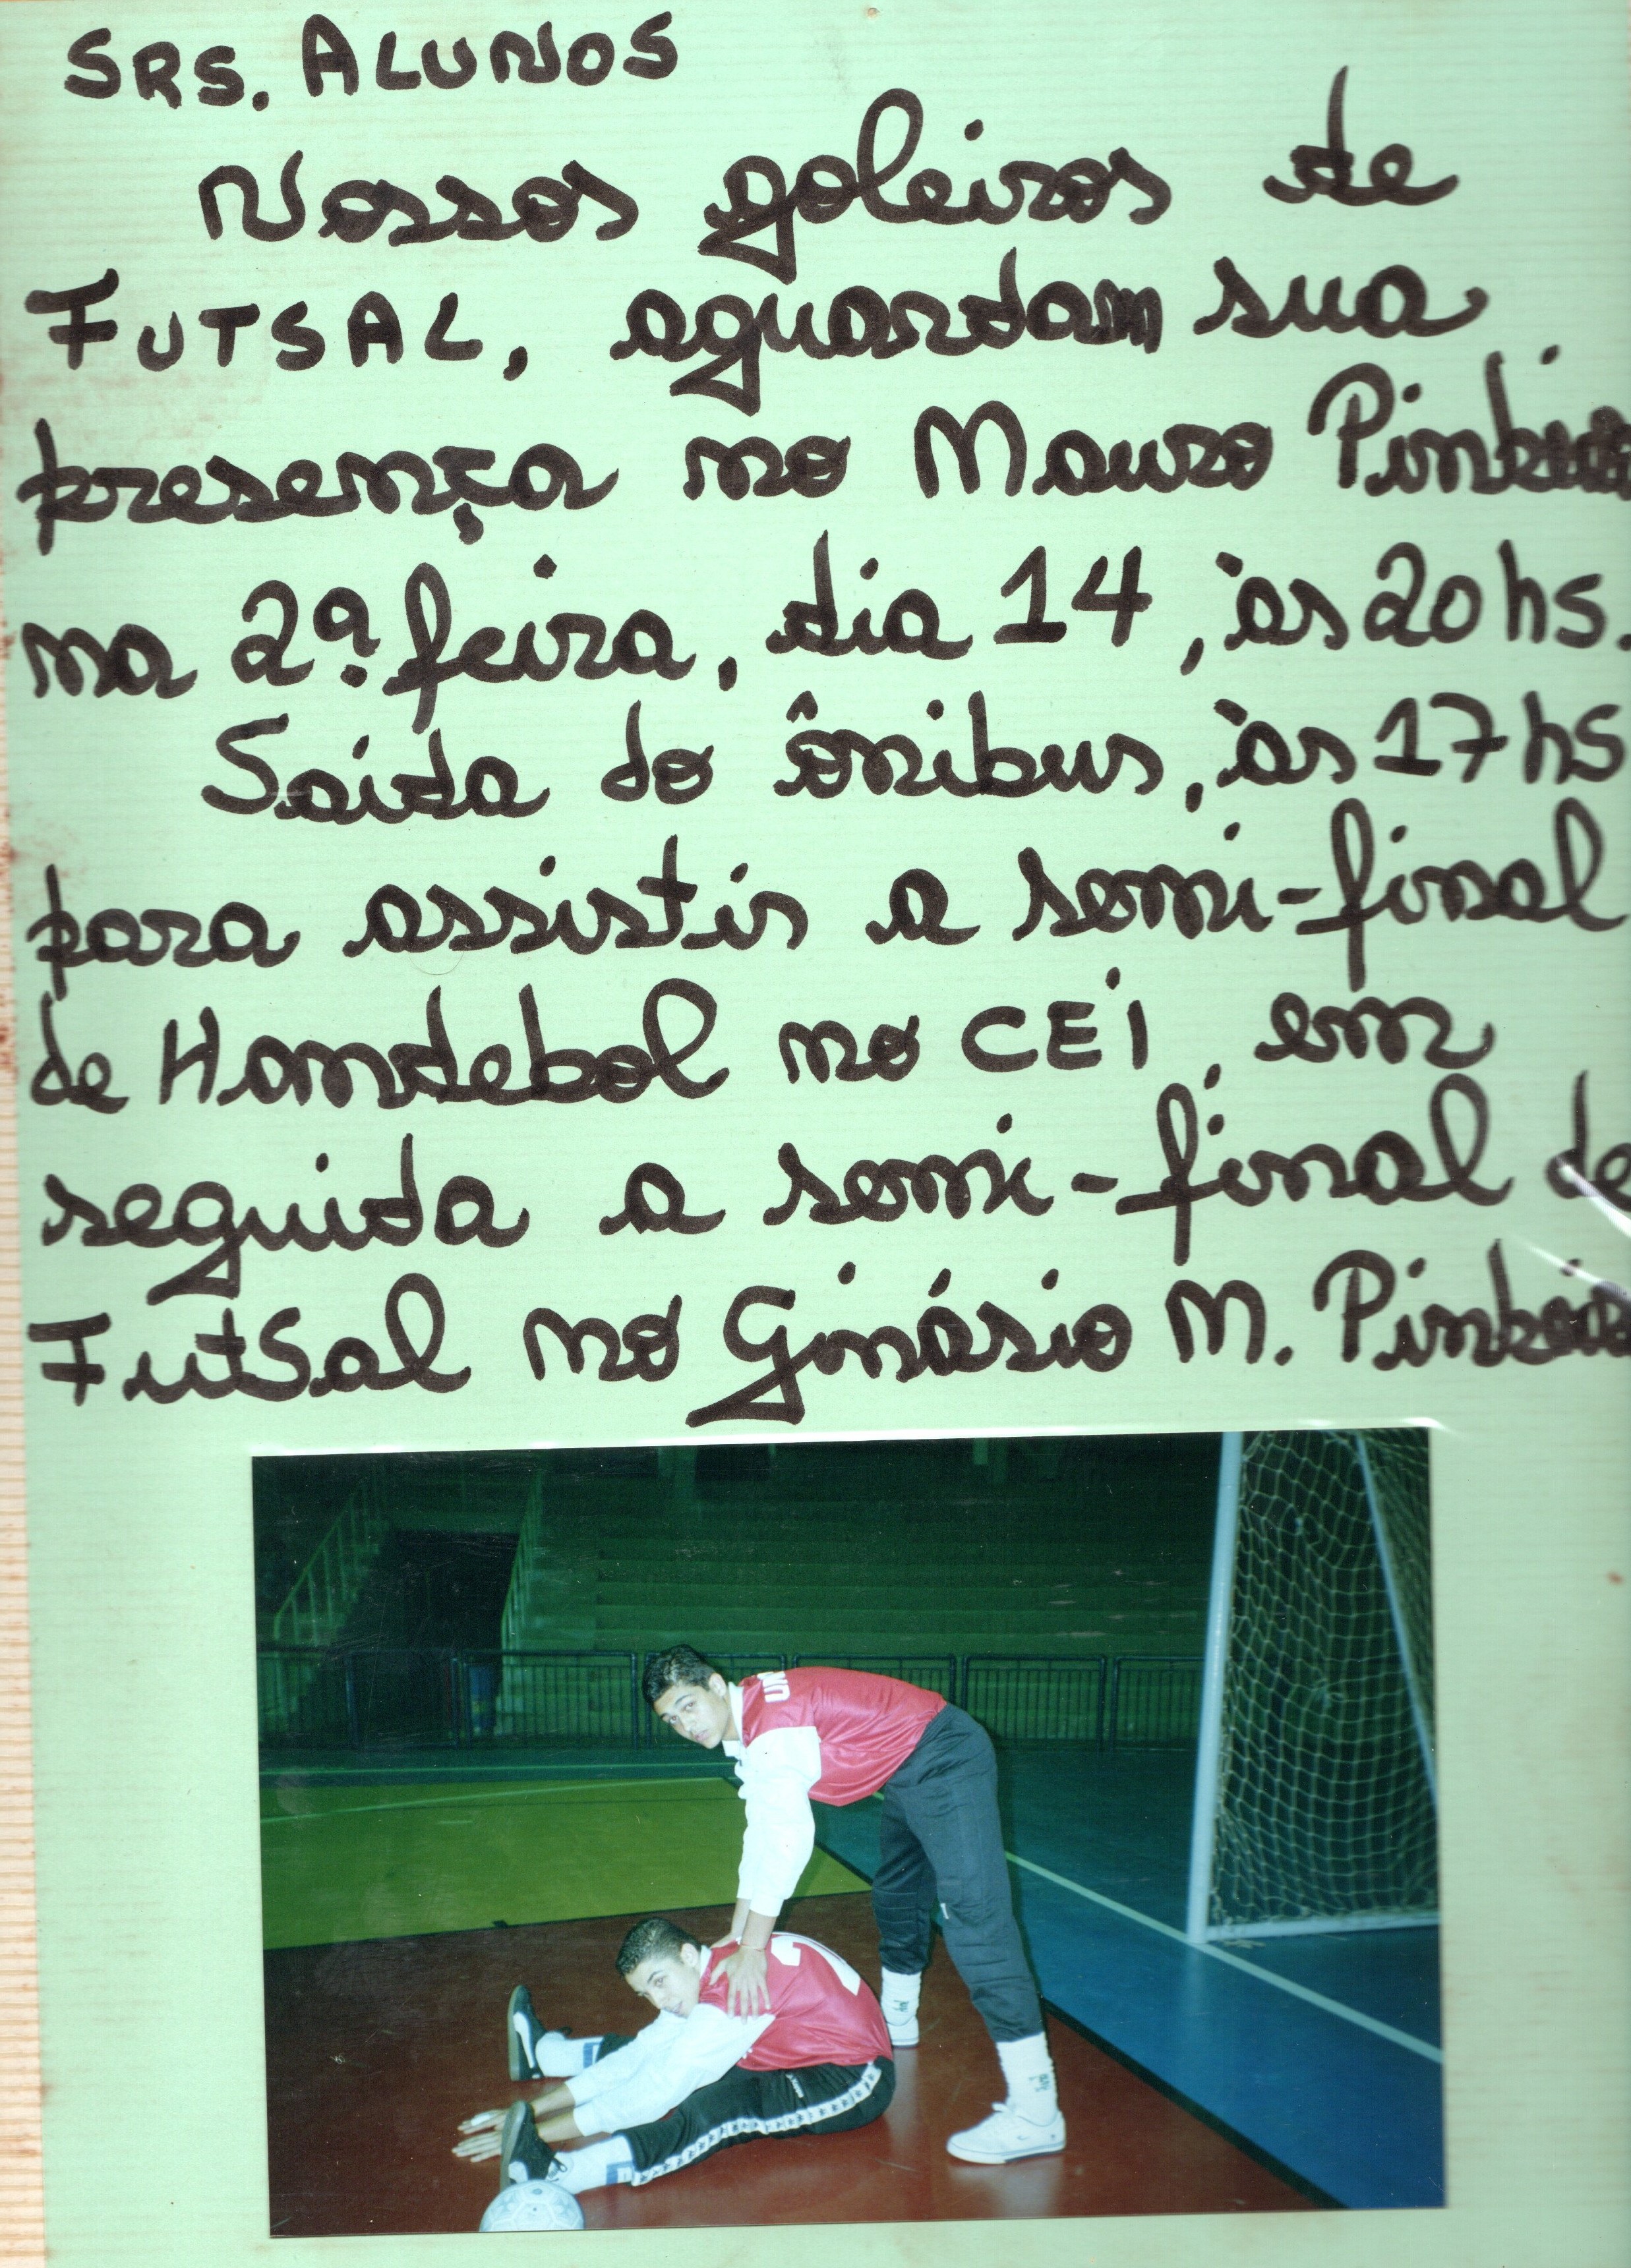 SRS. ALUNOS
Nossos goleiros de
FUTSAL, aguardam sua
presença no Mauro Pinheiro
na 2ª feira, dia 14, às 20 hs.
Saída do ônibus, às 17 hs
para assistir a semi-final
de Handebol no CEI, em
seguida a semi-final de
FutSal no Ginásio M. Pinheiro
UN